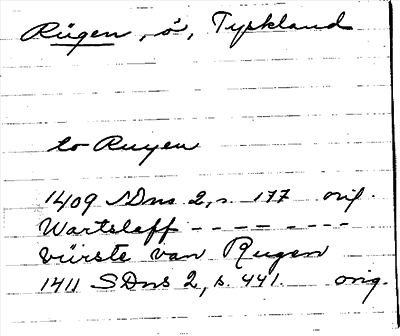 Rügen, ö, Tyskland
to Ruyen
1409 SDns 2, s. 177 orig.
Wartslaff - - - - - - -
vürste van Rugen
1411 SDns 2, s. 441. orig.